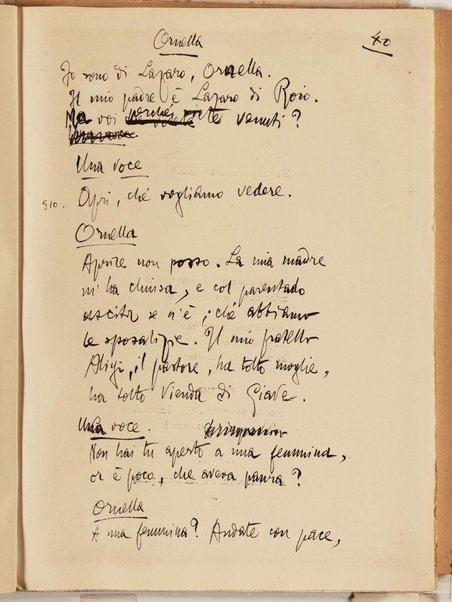 Ornella
40
Io sono di Lazaro, Ornella.
Il mio padre è Lazaro di Roio.
Ma voi perché siete venuti?
Una voce
910. Apri, ché vogliamo vedere.
Ornella
Aprire non posso. La mia madre
m'ha chiusa, e col parentado
escita se n'è; ché abbiamo
le sposalizie. Il mio fratello
Aligi, il pastore, ha tolto moglie,
ha tolto Vienda di Giave.
Una voce.
Non hai tu aperto a una femmina,
or è poco, che aveva paura?
Ornella
A una femmina? Andate con pace,